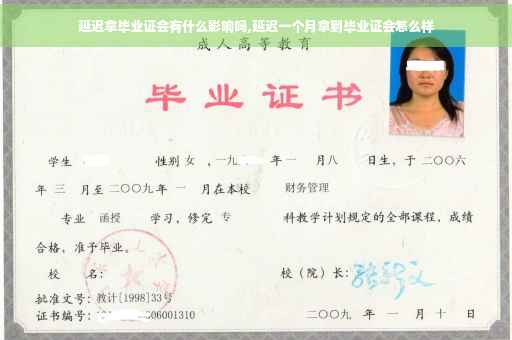 延迟拿毕业证会有什么影响吗,延迟一个月拿到毕业证会怎么样
成人高等教育
毕业证书
学生 性别 女 ,一九 年一 月八 日生,于二〇〇六
年 三 月至二〇〇九年 一 月在本校 财务管理
专业 函授 学习,修完 专 科教学计划规定的全部课程,成绩
合格,准予毕业。
校 名: 校(院)长:
批准文号:教计[1998]33号
证书编号: 06001310 二〇〇九 年 一 月 十 日